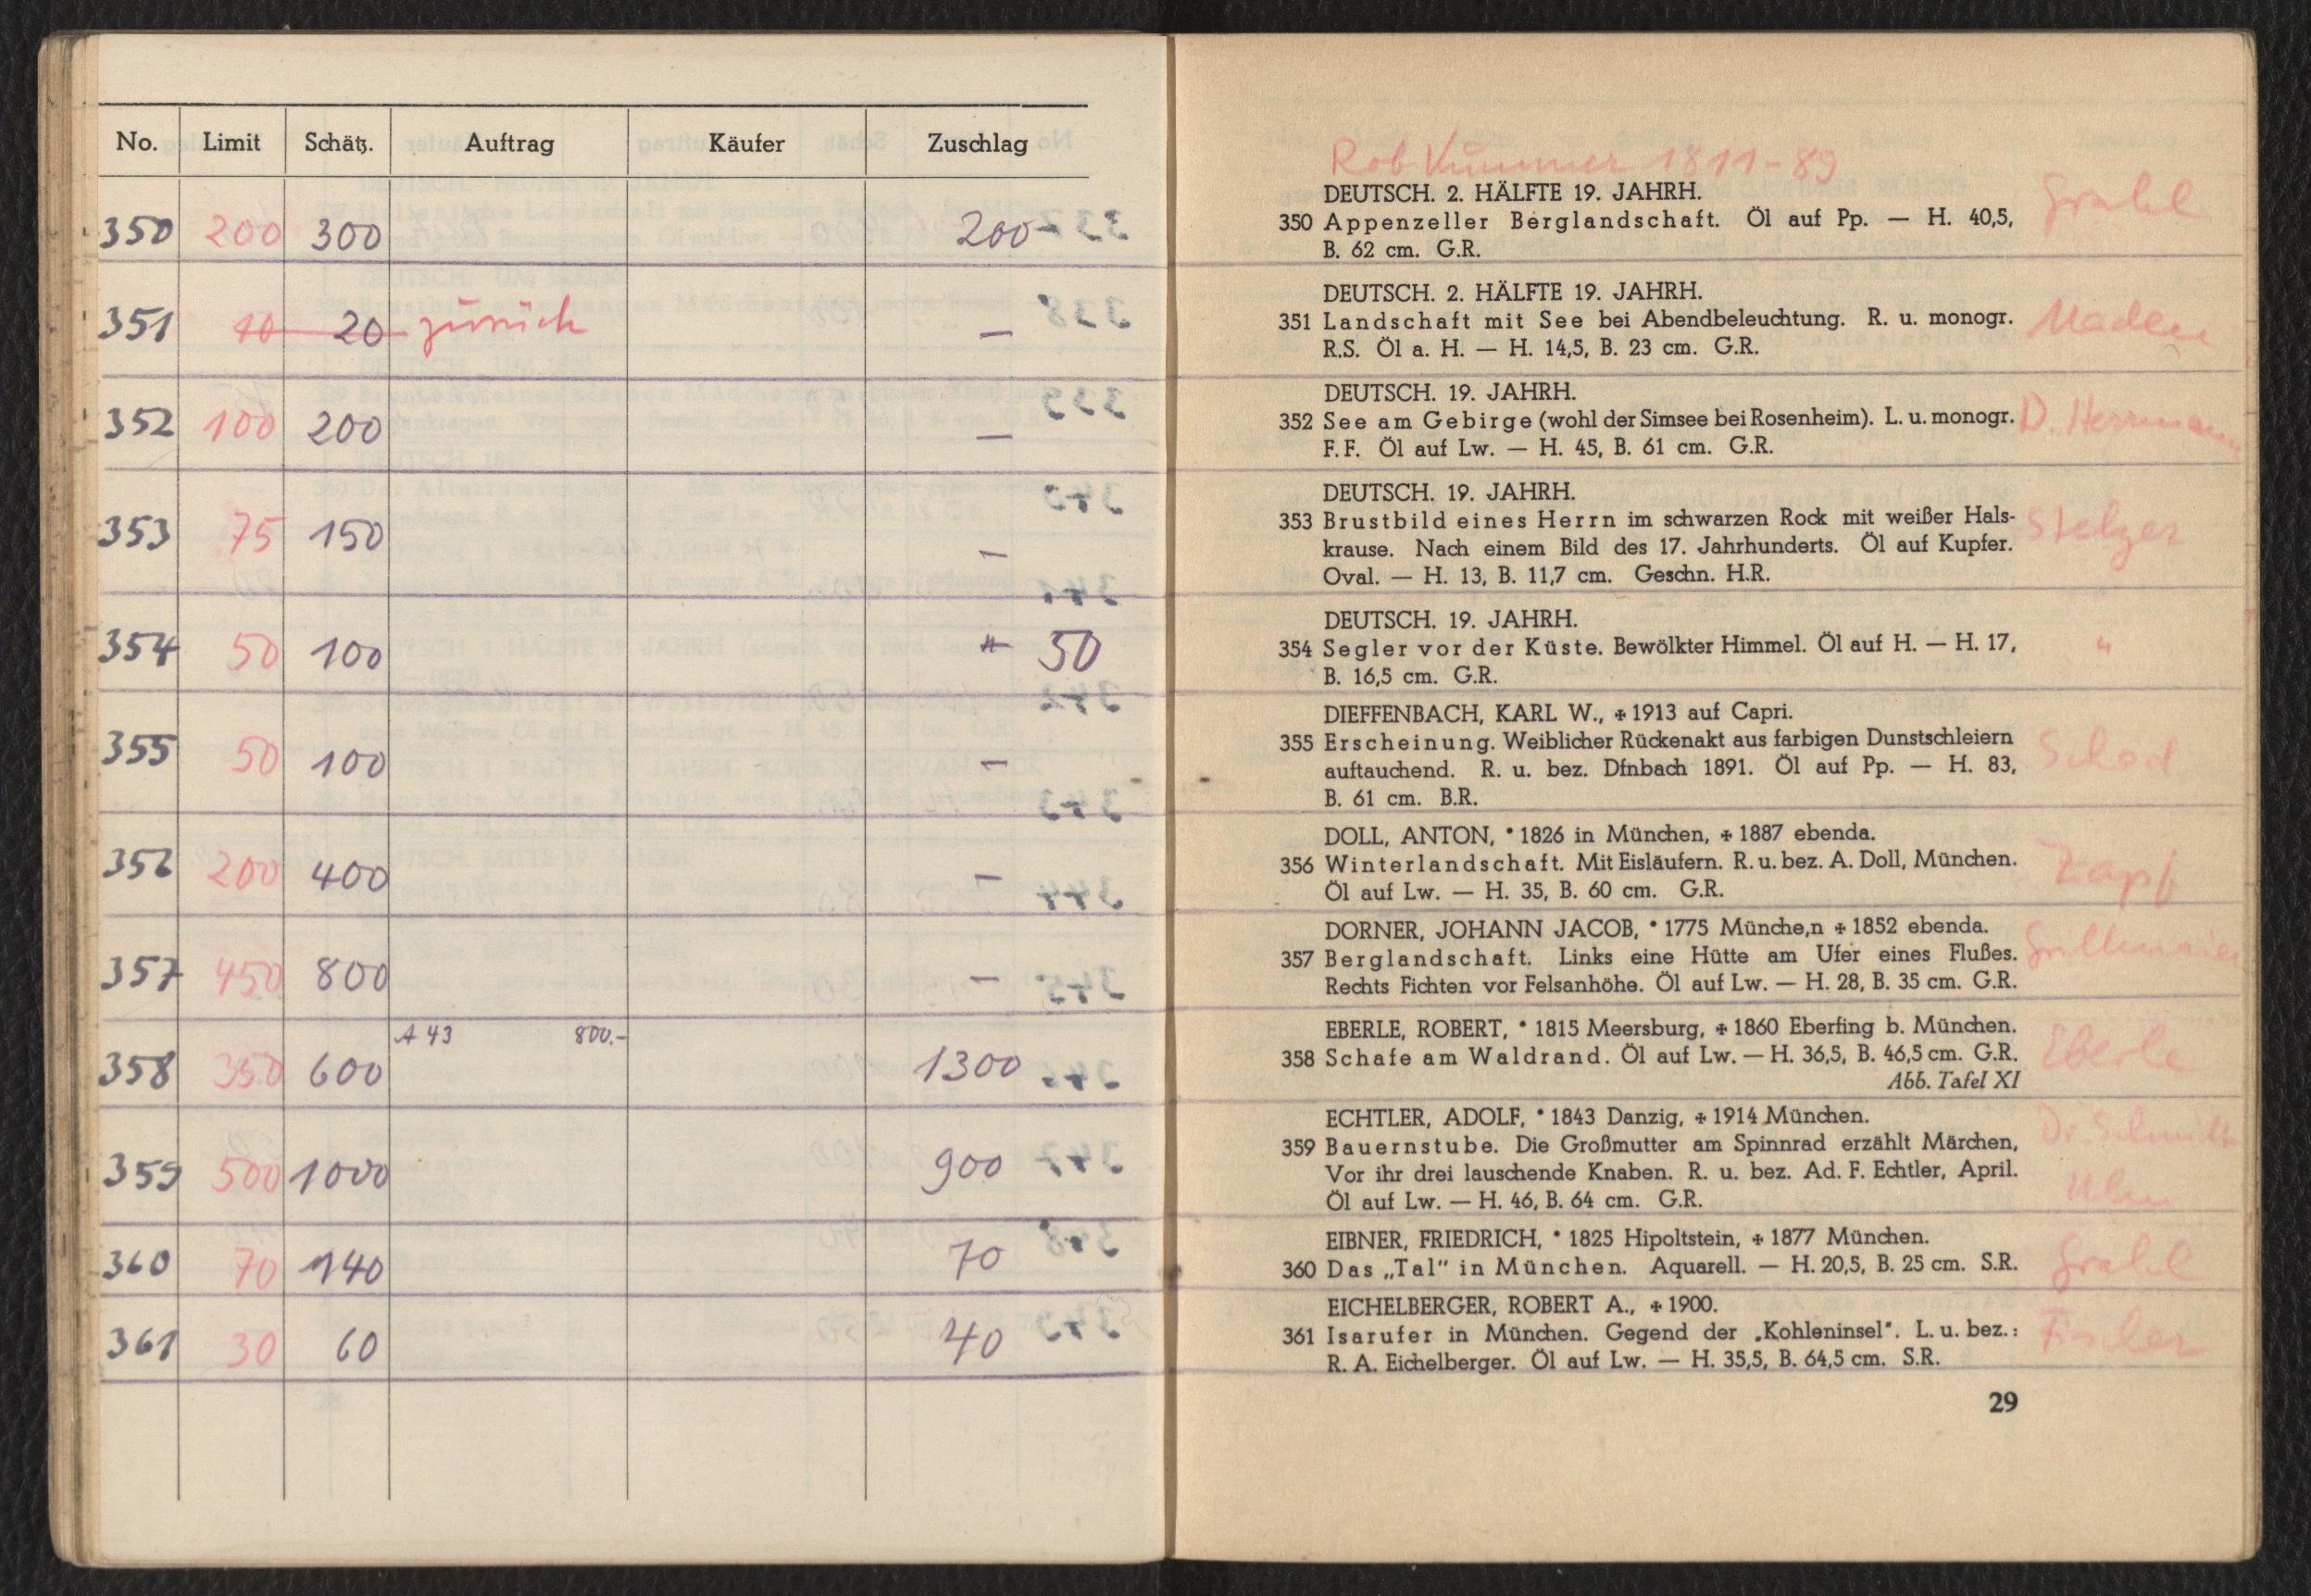 No. Limit Schätz. Auftrag Käufer Zuschlag
350 200 300 200
351 10 20 zurück —
352 100 200 —
353 75 150 —
354 50 100 50
355 50 100 —
356 200 400 —
357 450 800 —
A 43 800.-
358 350 600 1300
359 500 1000 900
360 70 140 70
361 30 60 40
Rob Kummer 1811-89
DEUTSCH. 2. HÄLFTE 19. JAHRH.
350 Appenzeller Berglandschaft. Öl auf Pp. — H. 40,5, Grahl
B. 62 cm. G.R.
DEUTSCH. 2. HÄLFTE 19. JAHRH.
351 Landschaft mit See bei Abendbeleuchtung. R. u. monogr.
R.S. Öl a. H. — H. 14,5, B. 23 cm. G.R.
DEUTSCH. 19. JAHRH.
352 See am Gebirge (wohl der Simsee bei Rosenheim). L. u. monogr. D. Herrmann
F. F. Öl auf Lw. — H. 45, B. 61 cm. G.R.
DEUTSCH. 19. JAHRH.
353 Brustbild eines Herrn im schwarzen Rock mit weißer Hals- Stelzer
krause. Nach einem Bild des 17. Jahrhunderts. Öl auf Kupfer.
Oval. — H. 13, B. 11,7 cm. Geschn. H.R.
DEUTSCH. 19. JAHRH.
354 Segler vor der Küste. Bewölkter Himmel. Öl auf H. — H. 17, "
B. 16,5 cm. G.R.
DIEFFENBACH, KARL W., ✠ 1913 auf Capri.
355 Erscheinung. Weiblicher Rückenakt aus farbigen Dunstschleiern
auftauchend. R. u. bez. Dfnbach 1891. Öl auf Pp. — H. 83,
B. 61 cm. B.R.
DOLL, ANTON, * 1826 in München, ✠ 1887 ebenda.
356 Winterlandschaft. Mit Eisläufern. R. u. bez. A. Doll, München. Zapf
Öl auf Lw. — H. 35, B. 60 cm. G.R.
DORNER, JOHANN JACOB, * 1775 Münche,n ✠ 1852 ebenda.
357 Berglandschaft. Links eine Hütte am Ufer eines Flußes. Grillmaier
Rechts Fichten vor Felsanhöhe. Öl auf Lw. — H. 28, B. 35 cm. G.R.
EBERLE, ROBERT, * 1815 Meersburg, ✠ 1860 Eberfing b. München.
358 Schafe am Waldrand. Öl auf Lw. — H. 36,5, B. 46,5 cm. G.R. Eberle
Abb. Tafel XI
ECHTLER, ADOLF, * 1843 Danzig, ✠ 1914 München.
359 Bauernstube. Die Großmutter am Spinnrad erzählt Märchen, Dr Schmidt
Vor ihr drei lauschende Knaben. R. u. bez. Ad. F. Echtler, April.
Öl auf Lw. — H. 46, B. 64 cm. G.R.
EIBNER, FRIEDRICH, * 1825 Hipoltstein, ✠ 1877 München.
360 Das „Tal" in München. Aquarell. — H. 20,5, B. 25 cm. S.R. Grahl
EICHELBERGER, ROBERT A., ✠ 1900.
361 Isarufer in München. Gegend der „Kohleninsel". L. u. bez.: Fischer
R. A. Eichelberger. Öl auf Lw. — H. 35,5, B. 64,5 cm. S.R.
29